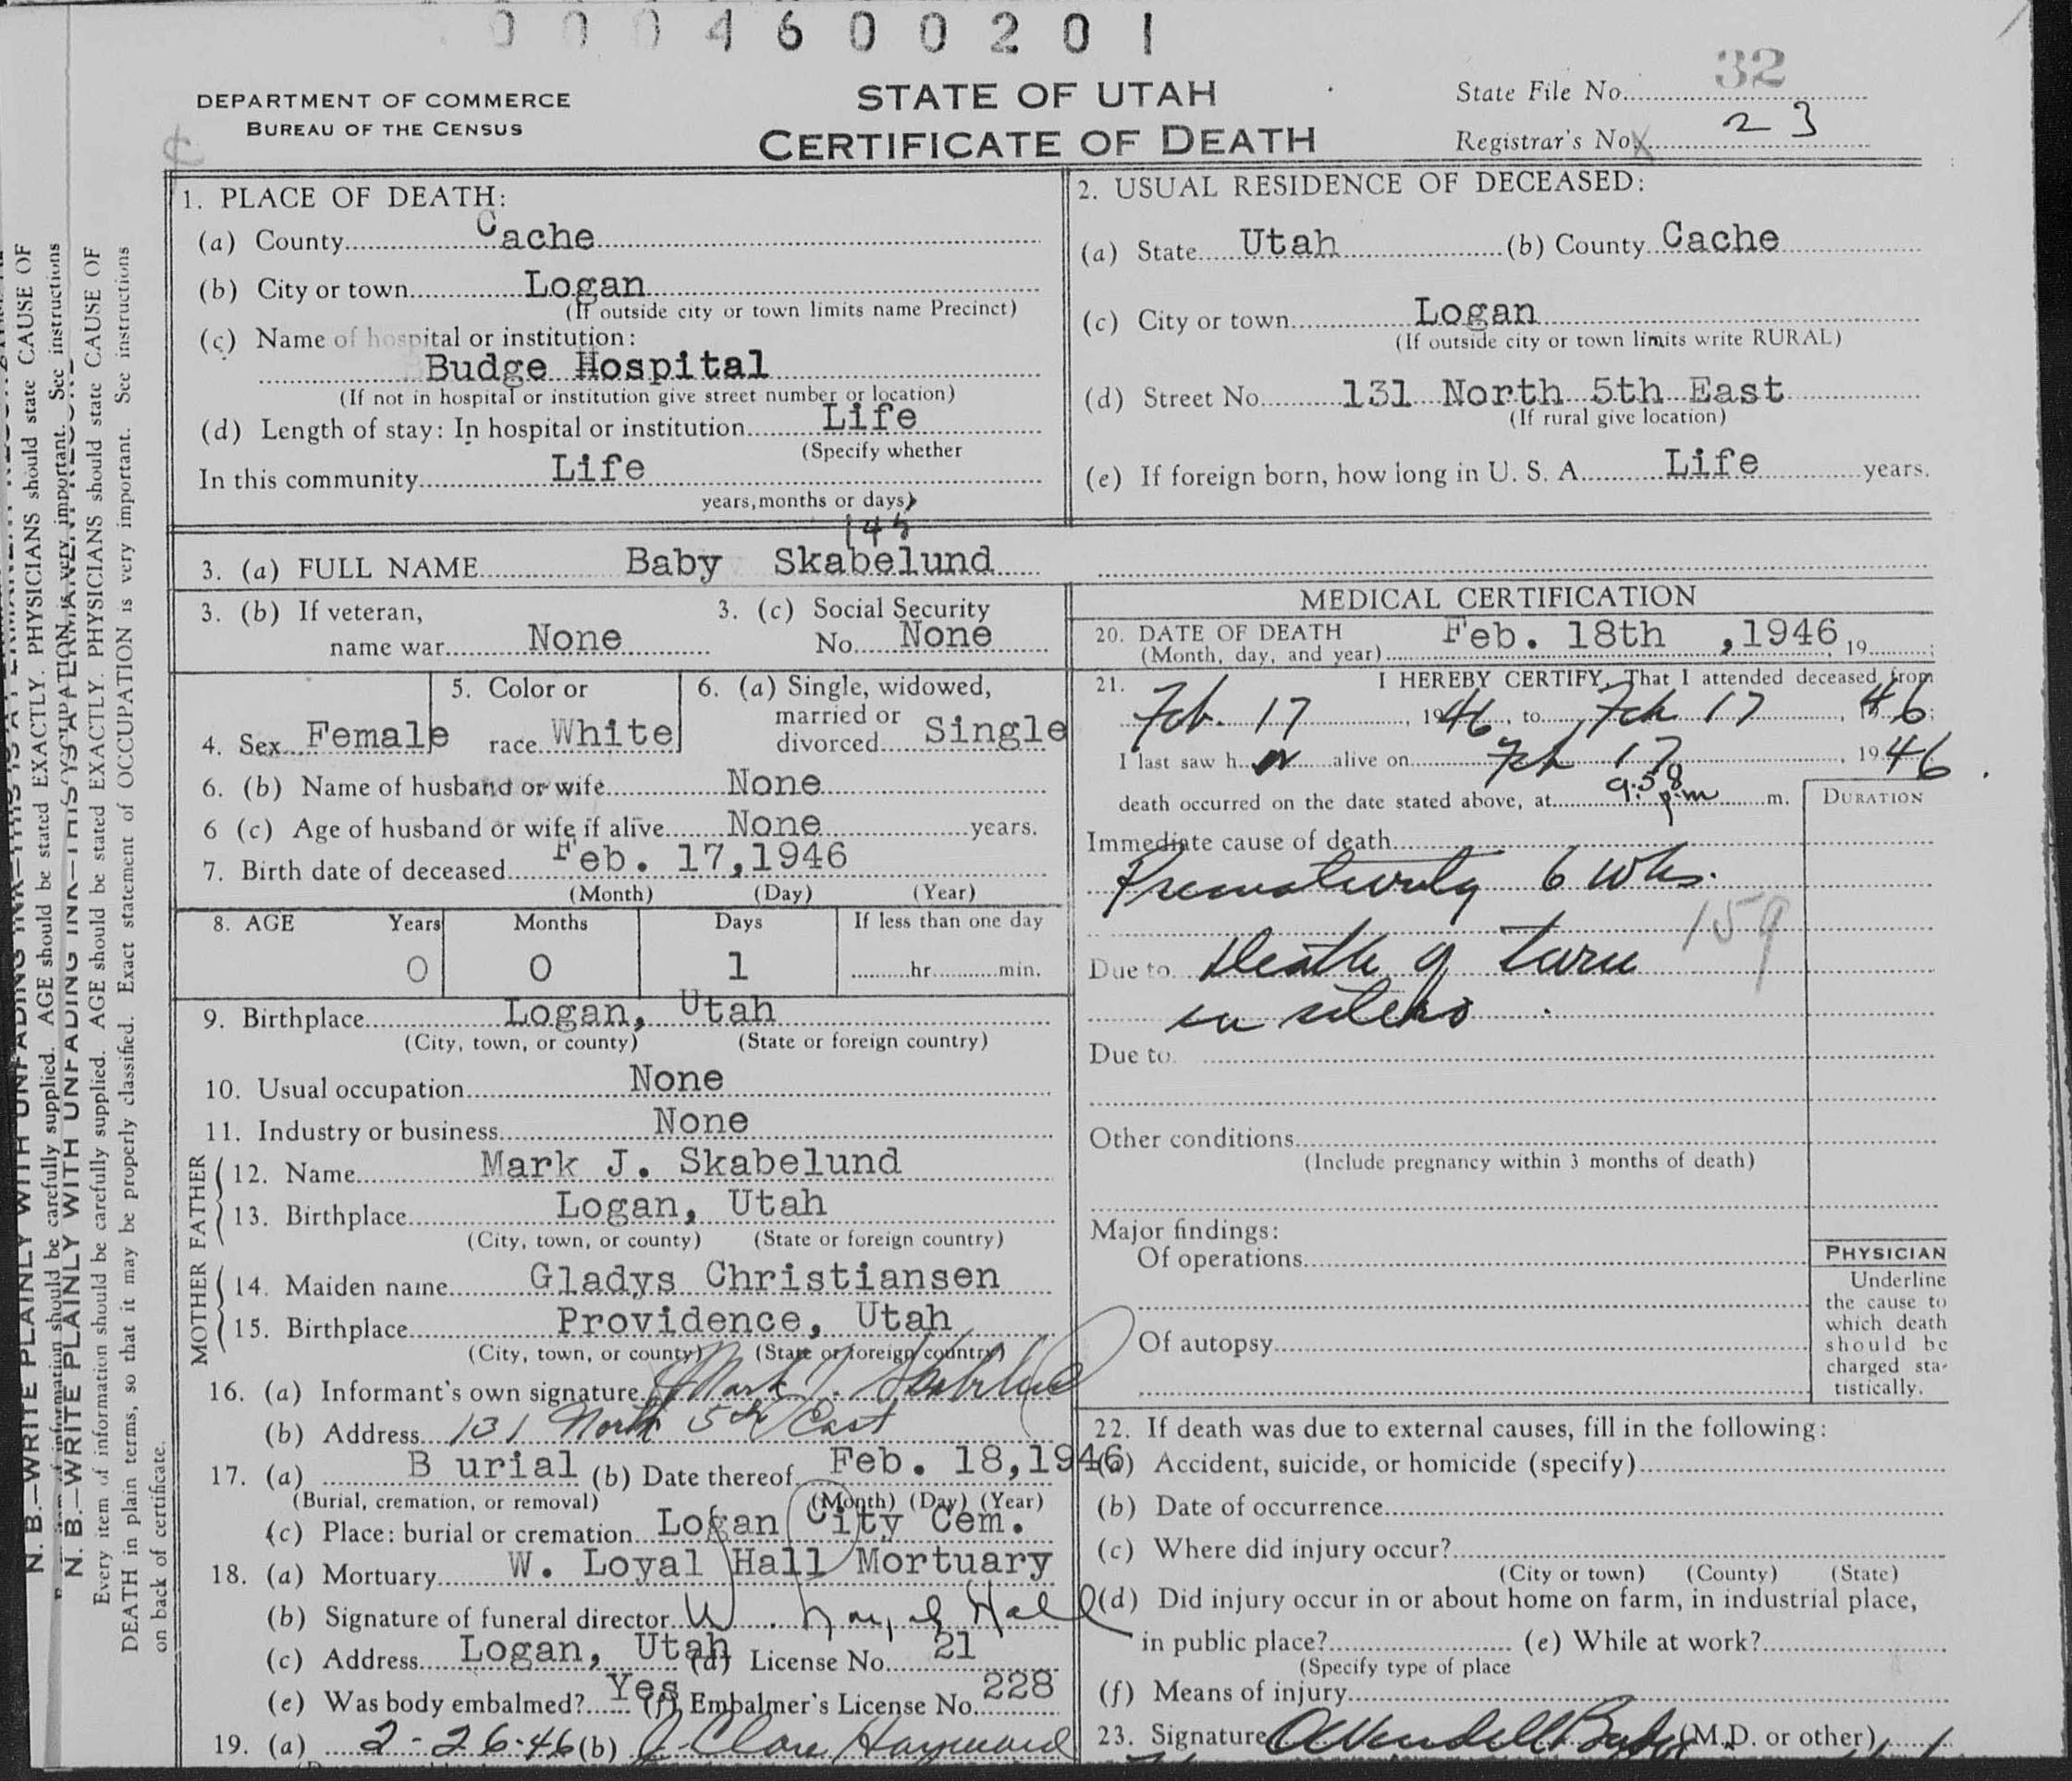 0 0 0 4 6 0 0 2 0 1
DEPARTMENT OF COMMERCE
BUREAU OF THE CENSUS
STATE OF UTAH
CERTIFICATE OF DEATH
State File No. 32
Registrar's No. 23
1. PLACE OF DEATH:
(a) County Cache
(b) City or town Logan
(If outside city or town limits name Precinct)
(c) Name of hospital or institution:
Budge Hospital
(If not in hospital or institution give street number or location)
(d) Length of stay: In hospital or institution Life
(Specify whether
In this community Life
years, months or days)
2. USUAL RESIDENCE OF DECEASED:
(a) State Utah (b) County Cache
(c) City or town Logan
(If outside city or town limits write RURAL)
(d) Street No. 131 North 5th East
(If rural give location)
(e) If foreign born, how long in U. S. A. Life years.
3. (a) FULL NAME Baby Skabelund
3. (b) If veteran, name war None
3. (c) Social Security No. None
4. Sex Female
5. Color or race White
6. (a) Single, widowed, married or divorced Single
6. (b) Name of husband or wife None
6 (c) Age of husband or wife if alive None years.
7. Birth date of deceased Feb. 17,1946
(Month) (Day) (Year)
8. AGE Years Months Days If less than one day
0 0 1 hr. min.
9. Birthplace Logan, Utah
(City, town, or county) (State or foreign country)
10. Usual occupation None
11. Industry or business None
FATHER
12. Name Mark J. Skabelund
13. Birthplace Logan, Utah
(City, town, or county) (State or foreign country)
MOTHER
14. Maiden name Gladys Christiansen
15. Birthplace Providence, Utah
(City, town, or county) (State or foreign country)
16. (a) Informant's own signature Mark J. Skabelund
(b) Address 131 North 5th East
17. (a) B urial (b) Date thereof Feb. 18,1946
(Burial, cremation, or removal) (Month) (Day) (Year)
(c) Place: burial or cremation Logan City Cem.
18. (a) Mortuary W. Loyal Hall Mortuary
(b) Signature of funeral director W. Loyal Hall
(c) Address Logan, Utah (d) License No. 21
(e) Was body embalmed? Yes (f) Embalmer's License No. 228
19. (a) 2-26-46 (b) J. Clare Hayward
MEDICAL CERTIFICATION
20. DATE OF DEATH Feb. 18th ,1946, 19 ;
(Month, day, and year)
21. I HEREBY CERTIFY, That I attended deceased from
Feb. 17, 1946, to Feb 17, 1946;
I last saw h er alive on Feb 17, 1946
death occurred on the date stated above, at 9:58 pm m.
DURATION
Immediate cause of death
Prematurity 6 wks.
159
Due to Death of twin
in utero
Due to
Other conditions
(Include pregnancy within 3 months of death)
Major findings:
Of operations
Of autopsy
PHYSICIAN
Underline
the cause to
which death
should be
charged sta-
tistically.
22. If death was due to external causes, fill in the following:
(a) Accident, suicide, or homicide (specify)
(b) Date of occurrence
(c) Where did injury occur?
(City or town) (County) (State)
(d) Did injury occur in or about home on farm, in industrial place,
in public place? (e) While at work?
(Specify type of place
(f) Means of injury
23. Signature (M.D. or other)
N. B.—WRITE PLAINLY WITH UNFADING INK—THIS IS A PERMANENT RECORD
Every item of information should be carefully supplied. AGE should be stated EXACTLY. PHYSICIANS should state CAUSE OF
DEATH in plain terms, so that it may be properly classified. Exact statement of OCCUPATION is very important. See instructions
on back of certificate.